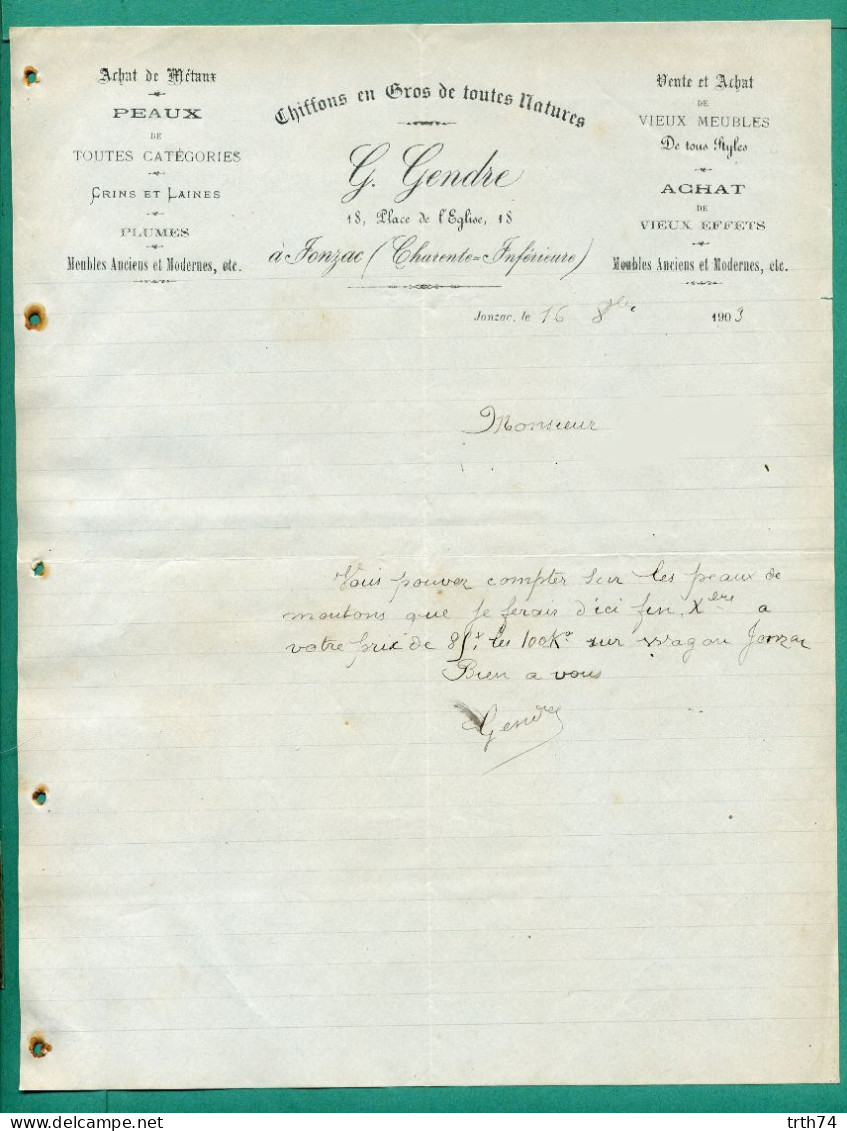 Achat de Métaux
PEAUX
DE
TOUTES CATÉGORIES
CRINS ET LAINES
PLUMES
Meubles Anciens et Modernes, etc.
Chiffons en Gros de toutes Natures
G. Gendre
18, Place de l'Eglise, 18
à Jonzac (Charente=Inférieure)
Vente et Achat
DE
VIEUX MEUBLES
De tous Styles
ACHAT
DE
VIEUX EFFETS
Meubles Anciens et Modernes, etc.
Jonzac, le 16 8bre 1903
Monsieur
Vous pouvez compter sur les peaux de
moutons que je ferais d'ici fin Xbre a
votre prix de les 100K° sur wagon Jonzac
Bien a vous
Gendre
trth74